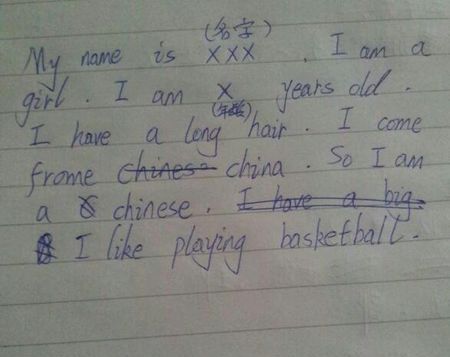 (名字)
My name is XXX . I am a
girl . I am X years old .
(年龄)
I have a long hair . I come
frome chinese china . So I am
a chinese . I have a big
I like playing basketball .